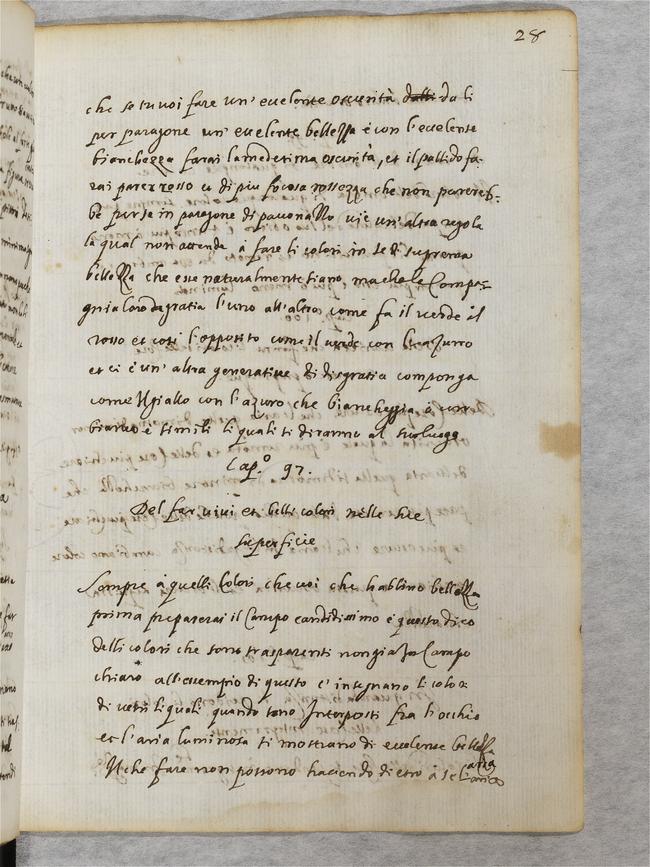 28
che se tu voi fare un' eccelente oscurità dalli da li
per paragone un' eccelente bellezza è con l'eccelente
bianchezza farai la medesima oscurità, et il pallido fa-
rai parer rosso et di piu focosa rossezza che non parereb-
be per se in paragone di pauonazzo ui è un' altra regola
la qual non attende à fare li colori in se di suprema
bellezza che esse naturalmente siano, ma che le Compa-
gnia loro da gratia l'uno all'altro, come fa il uerde il
rosso et cosi l'opposito come il uerde con l'azurro
et ci è un' altra generatiue di disgratia componga
come Il giallo con l'azuro che biancheggia, ò con
bianco è simili li quali ti diranno al suo luogo
Cap.º 97.
Del far uiui et belli colori nelle sue
superficie
Sempre à quelli Colori che uoi che habbino bellezza
prima preparerai il Campo candidissimo è questo dico
delli colori che sono trasparenti non gia Campo
chiaro all'essempio di questo c' insegnano li color
di uetri li quali quando sono Interposti fra l'occhio
et l'aria luminosa ti mostrano di eccelente bellezza
Il che fare non possono hauendo dietro à se l'aria